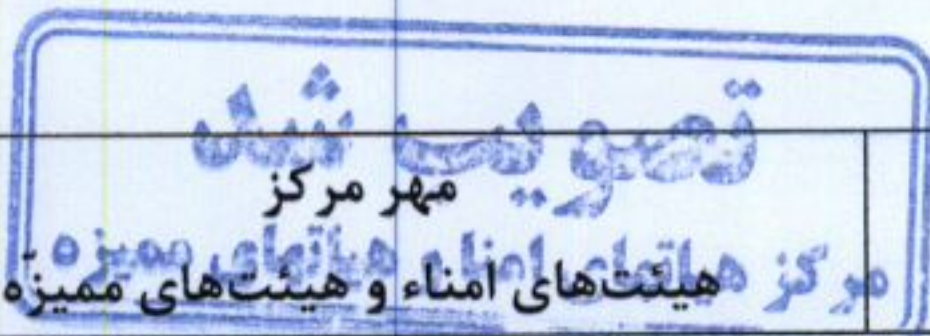 تصویب شد
مهر مرکز
مرکز هیاتهای امناء و هیاتهای ممیزه
هیئت‌های امناء و هیئت‌های ممیزّه